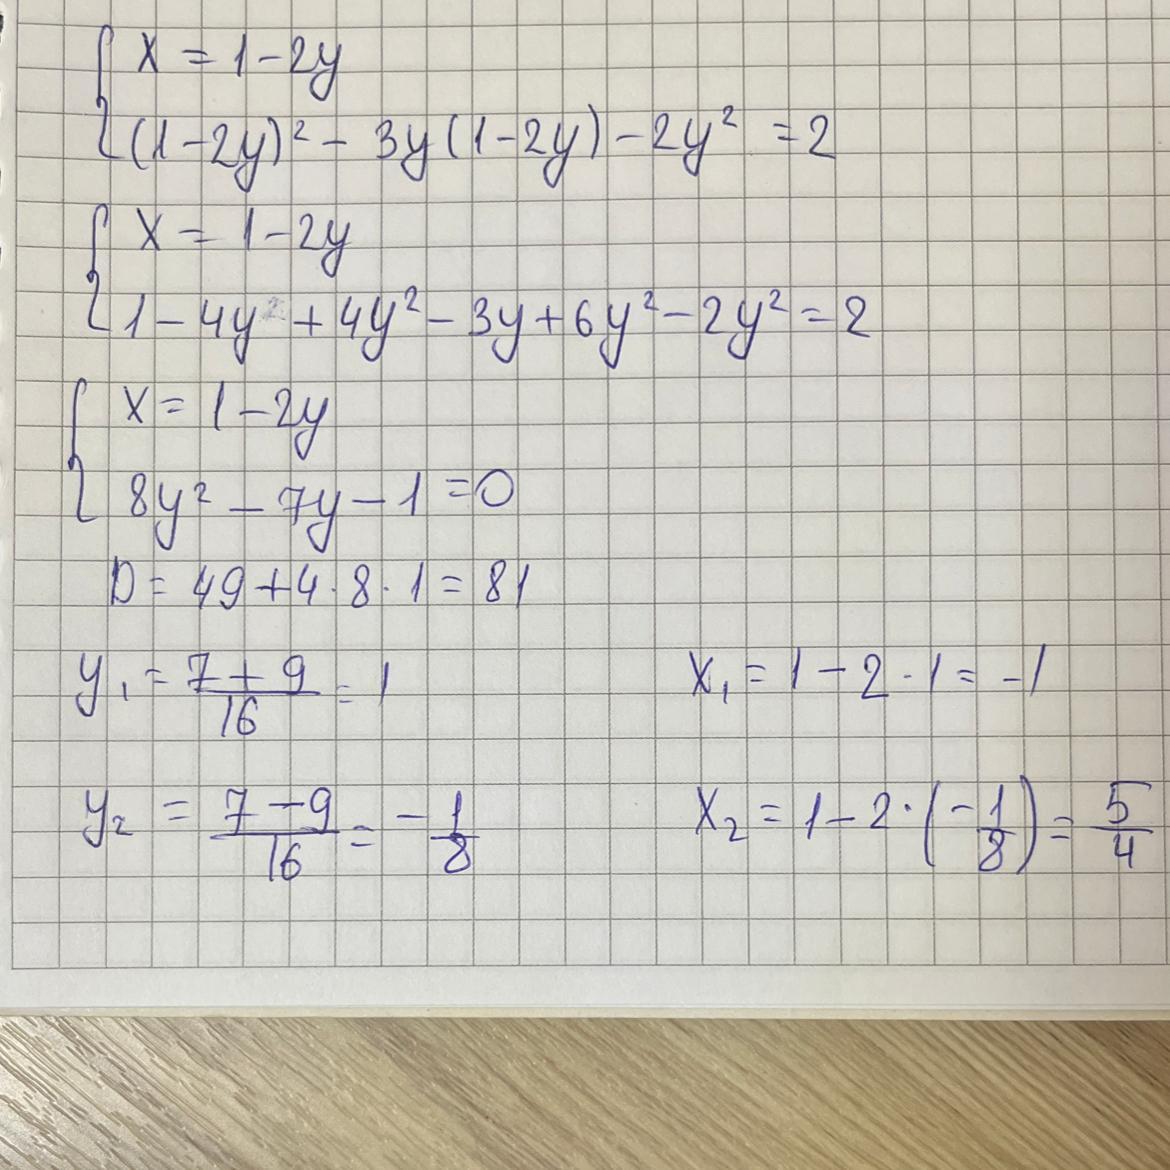 x = 1 - 2y
(1-2y)² - 3y(1-2y) - 2y² = 2
x = 1 - 2y
1 - 4y + 4y² - 3y + 6y² - 2y² = 2
x = 1 - 2y
8y² - 7y - 1 = 0
D = 49 + 4 · 8 · 1 = 81
y₁ = (7 + 9)/16 = 1    x₁ = 1 - 2 · 1 = -1
y₂ = (7 - 9)/16 = -1/8    x₂ = 1 - 2 · (-1/8) = 5/4